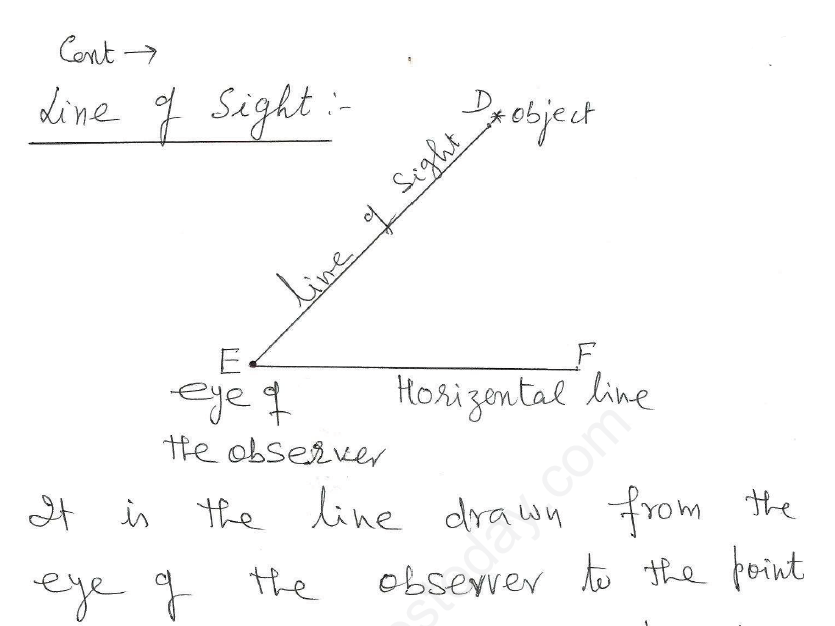 Cont →
Line of Sight :-
D
* object
line of sight
E
F
eye of
Horizental line
the observer
It is the line drawn from the
eye of the observer to the point